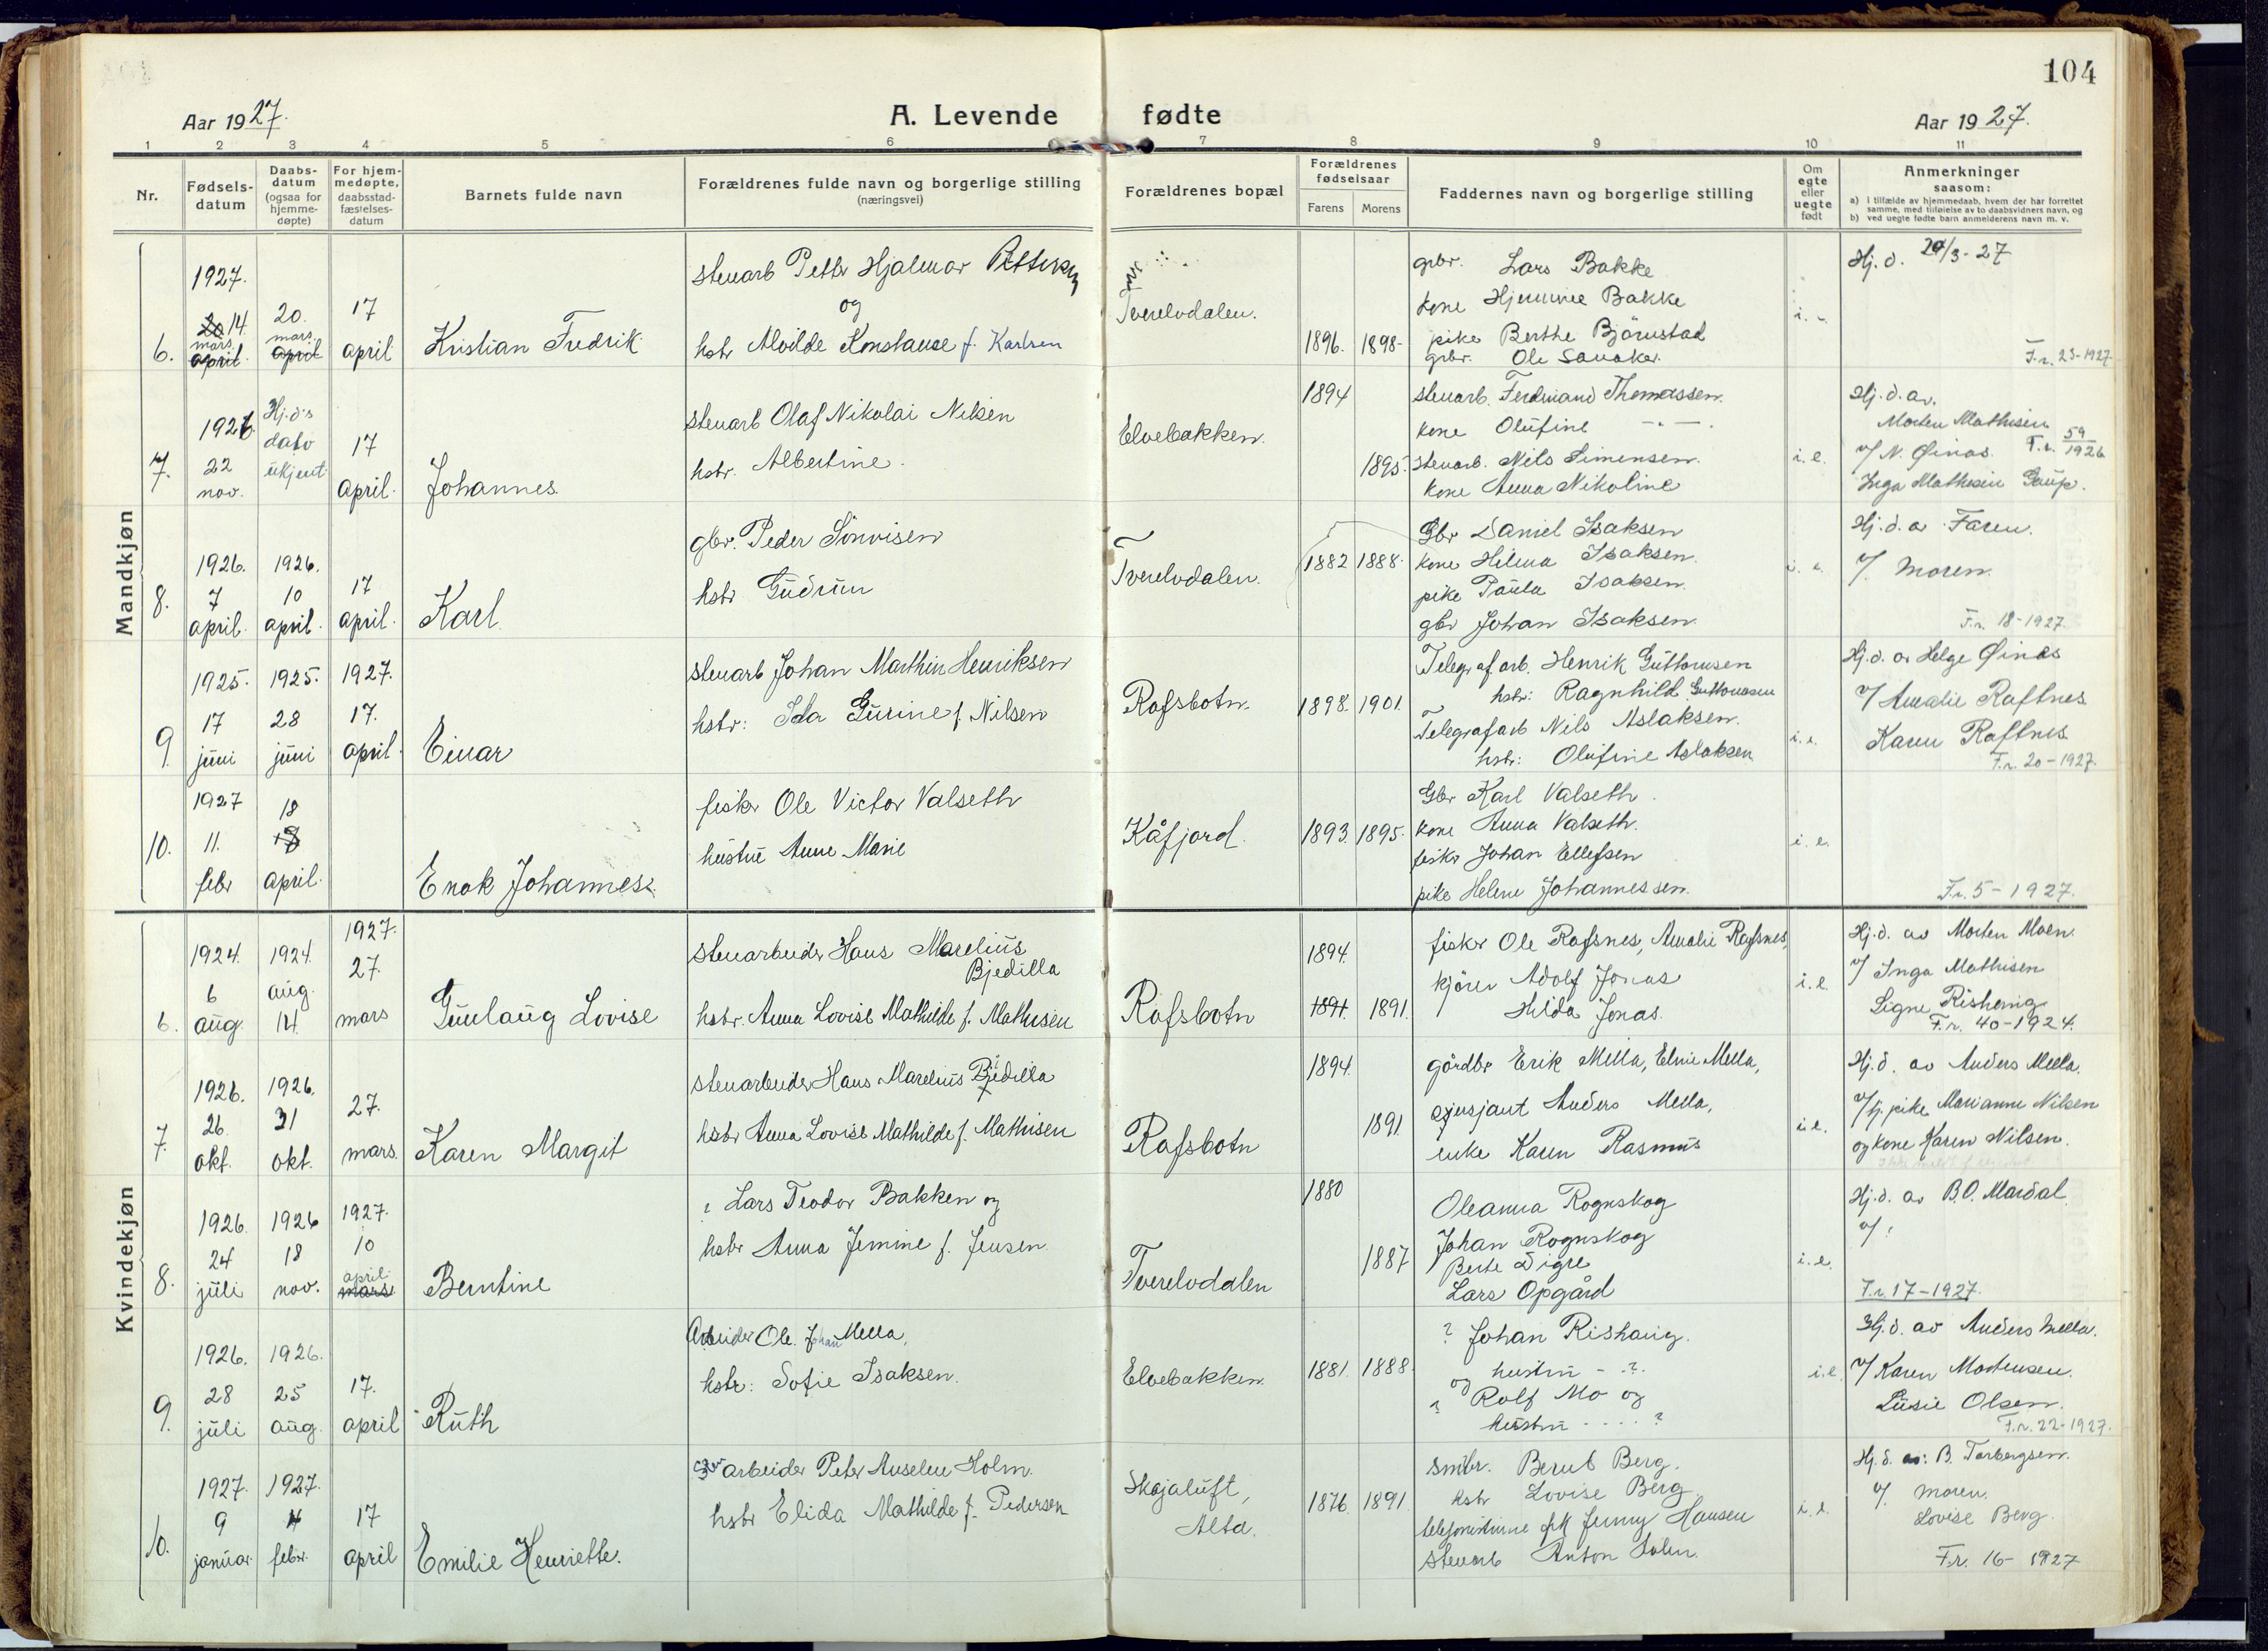 104
Aar 1927.
A. Levende fødte
Aar 1927.
1 2 3 4 5 6 7 8 9 10 11
Nr.
Fødsels-
datum
Daabs-
datum
(ogsaa for
hjemme-
døpte)
For hjem-
medøpte,
daabsstad-
fæstelses-
datum
Barnets fulde navn
Forældrenes fulde navn og borgerlige stilling
(næringsvei)
Forældrenes bopæl
Forældrenes
fødselsaar
Farens Morens
Faddernes navn og borgerlige stilling
Om
egte
eller
uegte
født
Anmerkninger
saasom:
a) i tilfælde av hjemmedaab, hvem der har forrettet
samme, med tilføielse av to daabsvidners navn, og
b) ved uegte fødte barn anmelderens navn m. v.
Mandkjøn
6.
1927.
20 14.
mars.
april.
20.
mars.
april
17
april
Kristian Fredrik
stenarb Petter Hjalmar Pettersen
og
hstr Alvilde Konstanse f. Karlsen
Tverelvdalen.
1896. 1898-
grbr. Lars Bakke
kone Hjemmie Bakke
pike Berthe Bjørnstad
grbr. Ole Sanaker.
Hj. d. 20/3-27
F.r. 23-1927.
7.
1926
22
nov.
Hj.d's
dato
ukjent
17
april.
Johannes.
stenarb Olaf Nikolai Nilsen
hstr. Albertine.
Elvebakken.
1894
1895.
stenarb. Ferdinand Thomassen.
kone Olufine -„-
stenarb. Nils Simensen.
kone Anna Nikoline
i. e.
Hj.d. av.
Morten Mathisen
v/ N. Øinas. F.r. 59/1926
Inga Mathisen Gaup.
8.
1926.
7
april.
1926.
10
april.
17
april.
Karl.
gbr. Peder Sönvisen
hstr Gudrun
Tverelvdalen.
1882 1888.
Gbr Daniel Isaksen
kone Hilma Isaksen.
pike Paula Isaksen.
gbr Johan Isaksen.
Hj.d. av Faren.
v/ moren.
F.r. 18-1927.
9.
1925.
17
juni
1925.
28
juni
1927.
17.
april.
Einar
stenarb Johan Marthin Henriksen
hstr: Ida Gurine f. Nilsen
Rafsbotn.
1898. 1901.
Telegrafarb. Henrik Guttormsen
hstr: Ragnhild Guttormsen
Telegrafarb Nils Aslaksen.
hstr: Olufine Aslaksen
i. e.
Hj.d. av Helge Øinas
v/ Amalie Raftnes
Karen Raftnes
F.r. 20-1927.
10.
1927
11.
febr
18
april.
Enok Johannes.
fisker Ole Victor Valseth
hustru Anne Marie
Kåfjord.
1893. 1895.
Gbr Karl Valseth.
kone Anna Valseth.
fisker Johan Ellefsen
pike Helene Johannessen.
i. e.
F.r. 5-1927.
Kvindekjøn
6.
1924.
6
aug.
1924.
aug.
14.
1927.
27.
mars
Gunlaug Lovise
stenarbeider Hans Marelius
Bjedilla
hstr. Anna Lovise Mathilde f. Mathisen
Rafsbotn
1894.
1891. 1891.
fisker Ole Rafsnes, Amalie Rafsnes,
kjörer Adolf Jonas
Hilda Jonas.
i. e.
Hj.d. av Morten Moen.
v/ Inga Mathisen
Signe Rishaug
F.r. 40-1924.
7.
1926.
26.
okt.
1926.
31
okt.
27.
mars.
Karen Margit
stenarbeider Hans Marelius Bjedilla
hstr Anna Lovise Mathilde f. Mathisen
Rafsbotn
1894.
1891.
gårdbr Erik Mella, Eline Mella,
Anders Mella,
enke Karen Rasmus
i. e.
Hj.d. av Anders Mella.
v/ tj. pike Marianne Nilsen
og kone Karen Nilsen.
8.
1926.
24
juli
1926
18
nov.
1927.
10
april
mars
Berntine
? Lars Teodor Bakken og
hstr Anna Jemine f. Jensen.
Tverelvdalen
1880
1887
Oleanna Rognskog
Johan Rognskog
Berte Digre
Lars Opgård
i. e.
Hj.d. av B.O. Mardal.
v/ ?
F.r. 17-1927.
9.
1926.
28
juli
1926.
25
aug.
17.
april
Ruth
Arbeider Ole Johan Mella,
hstr: Sofie Isaksen.
Elvebakken.
1881. 1888.
? Johan Rishaug.
hustru - ?
og
? Rolf Mo og
hustru - - - - ?
i. e.
Hj.d. av Anders Mella.
v/ Karen Mortensen.
Lusie Olsen.
F.r. 22-1927.
10.
1927.
9
januar.
1927.
4
febr.
17
april
Emilie Henriette.
arbeider Peter Anselm Holm.
hstr Elida Mathilde f. Pedersen
Skajaluft,
Alta.
1876. 1891.
Smbr. Bernt Berg.
hstr Lovise Berg.
telefonistinne frk Jenny Hansen
stenarb Anton Holm.
i. e.
Hj.d. av: B. Torbergsen.
v/ moren.
Lovise Berg.
F.r. 16-1927